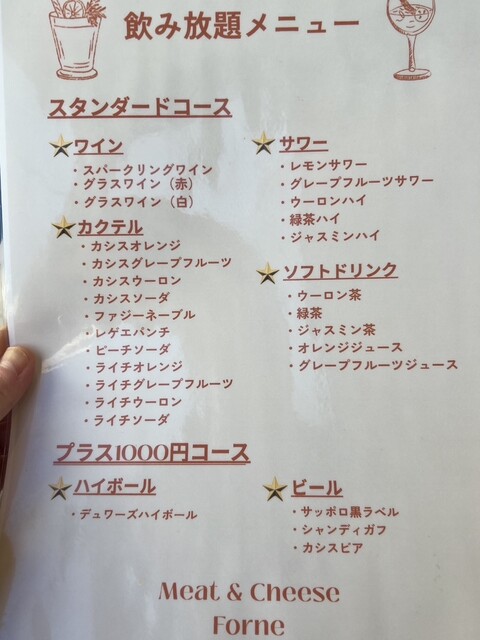 飲み放題メニュー
スタンダードコース
ワイン
・スパークリングワイン
・グラスワイン（赤）
・グラスワイン（白）
カクテル
・カシスオレンジ
・カシスグレープフルーツ
・カシスウーロン
・カシスソーダ
・ファジーネーブル
・レゲエパンチ
・ピーチソーダ
・ライチオレンジ
・ライチグレープフルーツ
・ライチウーロン
・ライチソーダ
サワー
・レモンサワー
・グレープフルーツサワー
・ウーロンハイ
・緑茶ハイ
・ジャスミンハイ
ソフトドリンク
・ウーロン茶
・緑茶
・ジャスミン茶
・オレンジジュース
・グレープフルーツジュース
プラス1000円コース
ハイボール
・デュワーズハイボール
ビール
・サッポロ黒ラベル
・シャンディガフ
・カシスビア
Meat & Cheese
Forne